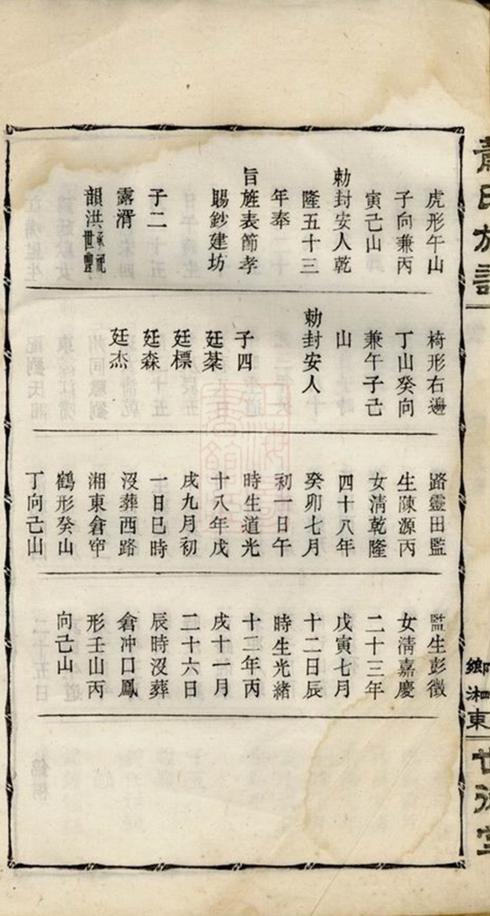 虎形午山
子向兼丙
寅己山
勅封安人乾
隆五十三
年奉
旨旌表節孝
賜鈔建坊
子二
露湑
韻洪承祀世豐
椅形右邊
丁山癸向
兼午子己
山
勅封安人
子四
廷棻
廷標
廷森
廷杰
路靈田監
生陳源丙
女淸乾隆
四十八年
癸卯七月
初一日午
時生道光
十八年戊
戌九月初
一日巳時
沒葬西路
湘東倉窂
鶴形癸山
丁向己山
監生彭徵
女淸嘉慶
二十三年
戊寅七月
十二日辰
時生光緒
十二年丙
戌十一月
二十六日
辰時沒葬
倉冲口鳳
形壬山丙
向己山
氏族譜
鄉湘東